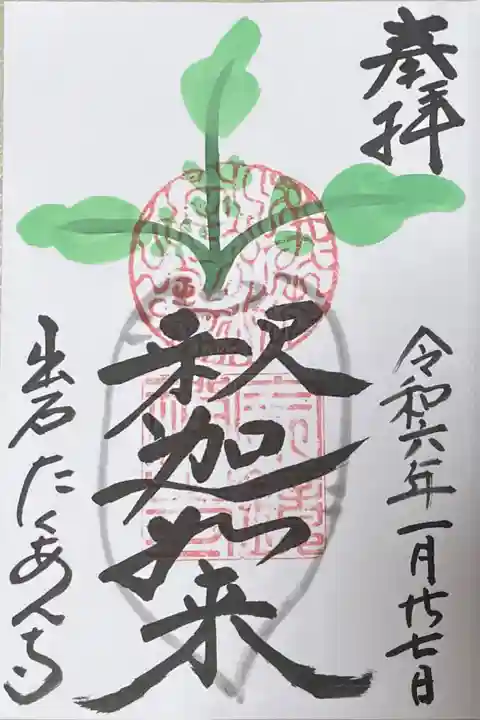 奉拝
令和六年一月廿七日
釈迦如来
出石たくあん寺